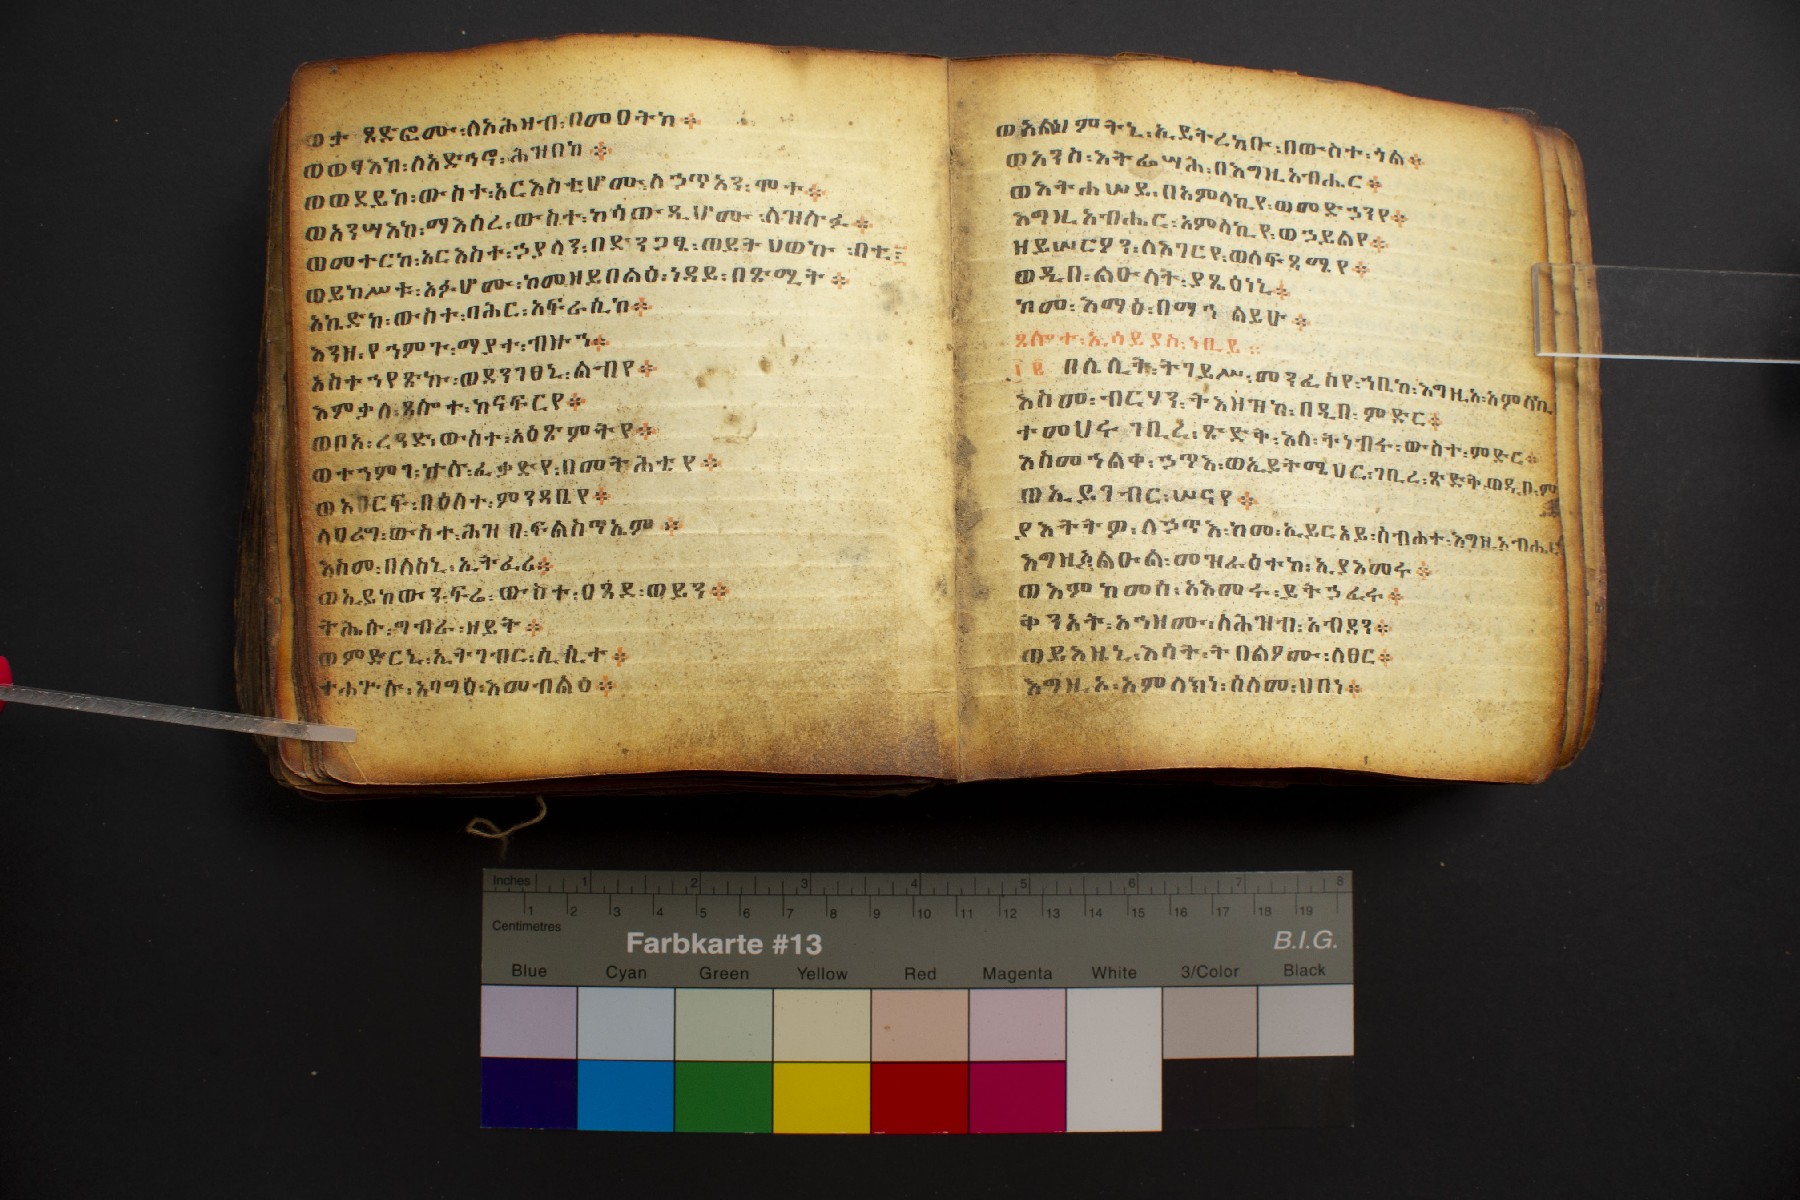 ወታ ጸድፎሙ፡ለአሕዛብ፡በመዐትከ፨
ወወፃእከ፡ለአድኅኖ፡ሕዝበከ፨
ወወደይከ፡ውስተ፡አርእስቲሆሙ፡ለኃጥአን፡ሞተ፨
ወአንሣእከ፡ማእሰረ፡ውስተ፡ክሳውዲሆሙ፡ለዝሉፉ፨
ወመተርከ፡አርእስተ፡ኃያላን፡በድንጋፄ፡ወይትህወኩ፡በቲ፨
ወይከሥቱ፡አፉሆሙ፡ከመዘይበልዕ፡ነዳይ፡በጽሚት፨
አኪድከ፡ውስተ፡ባሕር፡አፍራሲከ፨
እንዘ፡የኀምጉ፡ማያተ፡ብዙኀ፨
አስተኀየጽኩ፡ወደንገፀኒ፡ልብየ፨
እምቃለ፡ጸሎተ፡ከናፍርየ፨
ወቦአ፡ረዓድ፡ውስተ፡አዕጽምትየ፨
ወተኀምገ፡ኵሉ፡ፈቃድየ፡በመትሕቲየ፨
ወአዐርፍ፡በዕለተ፡ምንዳቤየ፨
ለዐሪግ፡ውስተ፡ሕዝበ፡ፍልስጥኤም፨
እስመ፡በለስኒ፡ኢትፈሪ፨
ወኢይከውን፡ፍሬ፡ውስተ፡ዐጸደ፡ወይን፨
ትሔሱ፡ግብራ፡ዘይት፨
ወምድርኒ፡ኢትገብር፡ሲሲተ፨
ተሐጕሉ፡አባግዕ፡እመብልዕ፨
ወአልህምትኒ፡ኢይትረአቡ፡በውስተ፡ጎል፨
ወአንሰ፡እትፌሣሕ፡በእግዚአብሔር፨
ወእትሐሠይ፡በአምላኪየ፡ወመድኃንየ፨
እግዚአብሔር፡አምላኪየ፡ወኃይልየ፨
ዘይሠርሆን፡ለእገርየ፡ወለፍጻሜየ፨
ወዲበ፡ልዑላት፡ያጼዕነኒ፨
ከመ፡እማዕ፡በማኅልይሁ፨
ጸሎተ፡ኢሳይያስ፡ነቢይ፨
በሌሊት፡ትገይሥ፡መንፈስየ፡ኀቤከ፡እግዚኦ፡አምላኪ
እስመ፡ብርሃን፡ትእዘዝከ፡በዲበ፡ምድር፨
ተመሀሩ ገቢረ፡ጽድቅ፡እለ፡ትነብሩ፡ውስተ፡ምድር፨
እስመ፡ኀልቀ፡ኃጥእ፡ወኢይትሜሀር፡ገቢረ፡ጽድቅ፡ወዲበ፡ም
ወኢይገብር፡ሠናየ፨
ያእትትዎ፡ለኃጥእ፡ከመ፡ኢይርአይ፡ስብሐተ፡እግዚአብሔር
እግዚኦ፡ልዑል፡መዝራዕተከ፡ኢያእመሩ፨
ወእምከመሰ፡አእመሩ፡ይትኃፈሩ፨
ቅንአት፡አኀዞሙ፡ለሕዝብ፡አብዳን፨
ወይእዜኒ፡እሳት፡ትበልዖሙ፡ለፀር፨
እግዚኦ፡አምላክነ፡ሰላመ፡ሀበነ፨